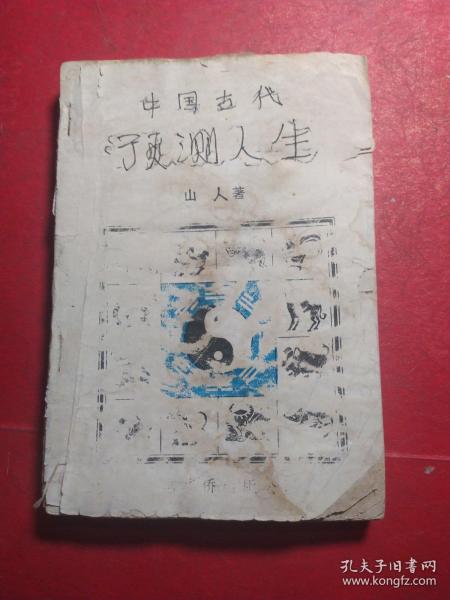 中国古代
预测人生
山人著
侨
孔夫子旧书网
www.kongfz.com